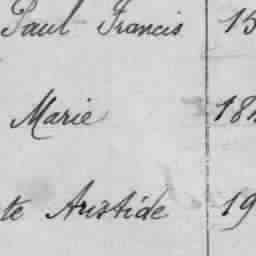 Paul Francis 15
Marie 18
te Aristide 19